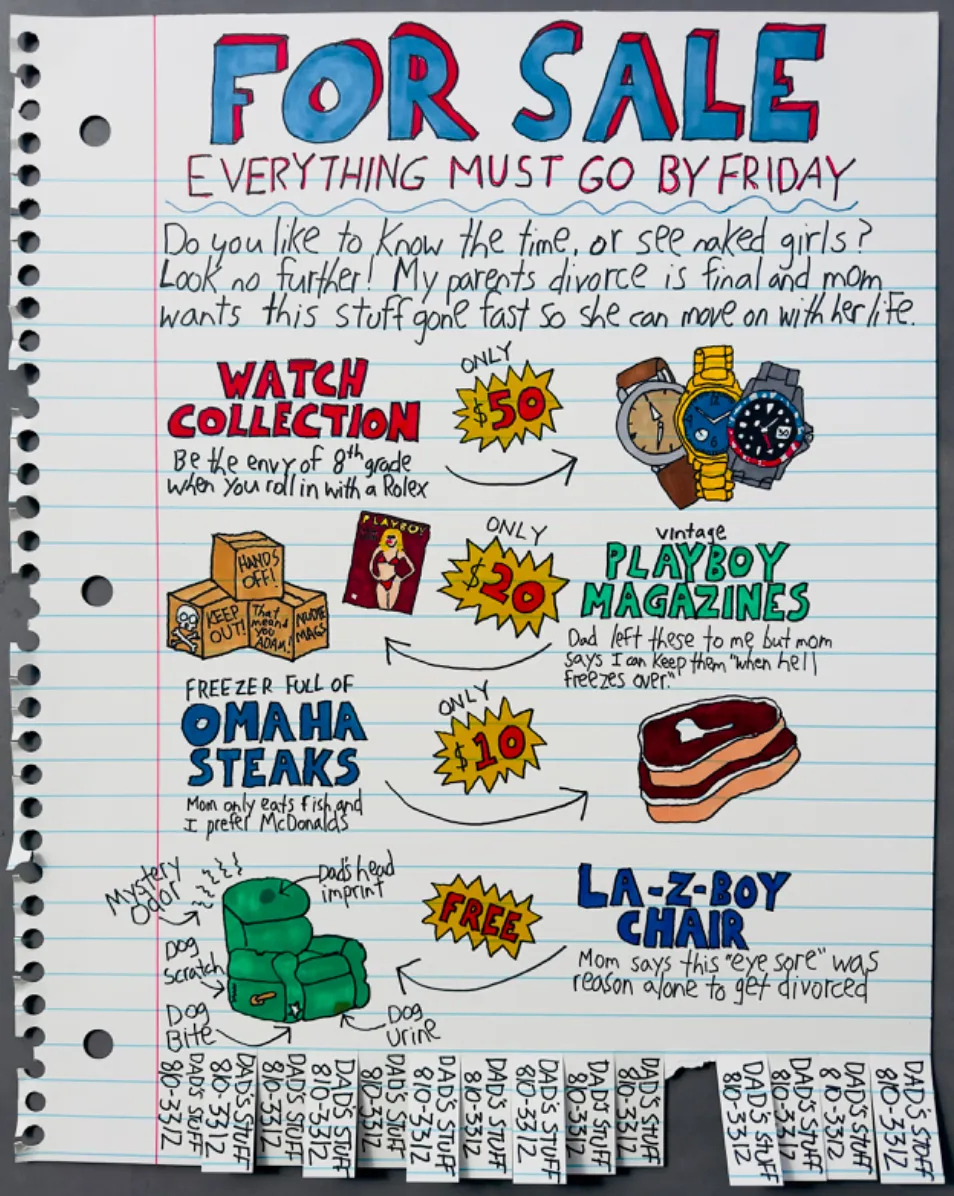 FOR SALE
EVERYTHING MUST GO BY FRIDAY
Do you like to know the time, or see naked girls?
Look no further! My parents divorce is final and mom
wants this stuff gone fast so she can move on with her life.
WATCH
COLLECTION
Be the envy of 8th grade
when you roll in with a Rolex
ONLY
$50
HANDS
OFF!
KEEP
OUT!
That
means
you
ADAM!
NUDIE
MAGS
PLAYBOY
ONLY
$20
vintage
PLAYBOY
MAGAZINES
Dad left these to me but mom
says I can keep them "when hell
freezes over."
FREEZER FULL OF
OMAHA
STEAKS
Mom only eats fish and
I prefer McDonalds
ONLY
$10
Mystery
Odor
Dad's head
imprint
Dog
Scratch
Dog
Bite
Dog
Urine
FREE
LA-Z-BOY
CHAIR
Mom says this "eye sore" was
reason alone to get divorced
DAD'S STUFF
810-3312
DAD'S STUFF
810-3312
DAD'S STUFF
810-3312
DAD'S STUFF
810-3312
DAD'S STUFF
810-3312
DAD'S STUFF
810-3312
DAD'S STUFF
810-3312
DAD'S STUFF
810-3312
DAD'S STUFF
810-3312
DAD'S STUFF
810-3312
DAD'S STUFF
810-3312
DAD'S STUFF
810-3312
DAD'S STUFF
810-3312
DAD'S STUFF
810-3312